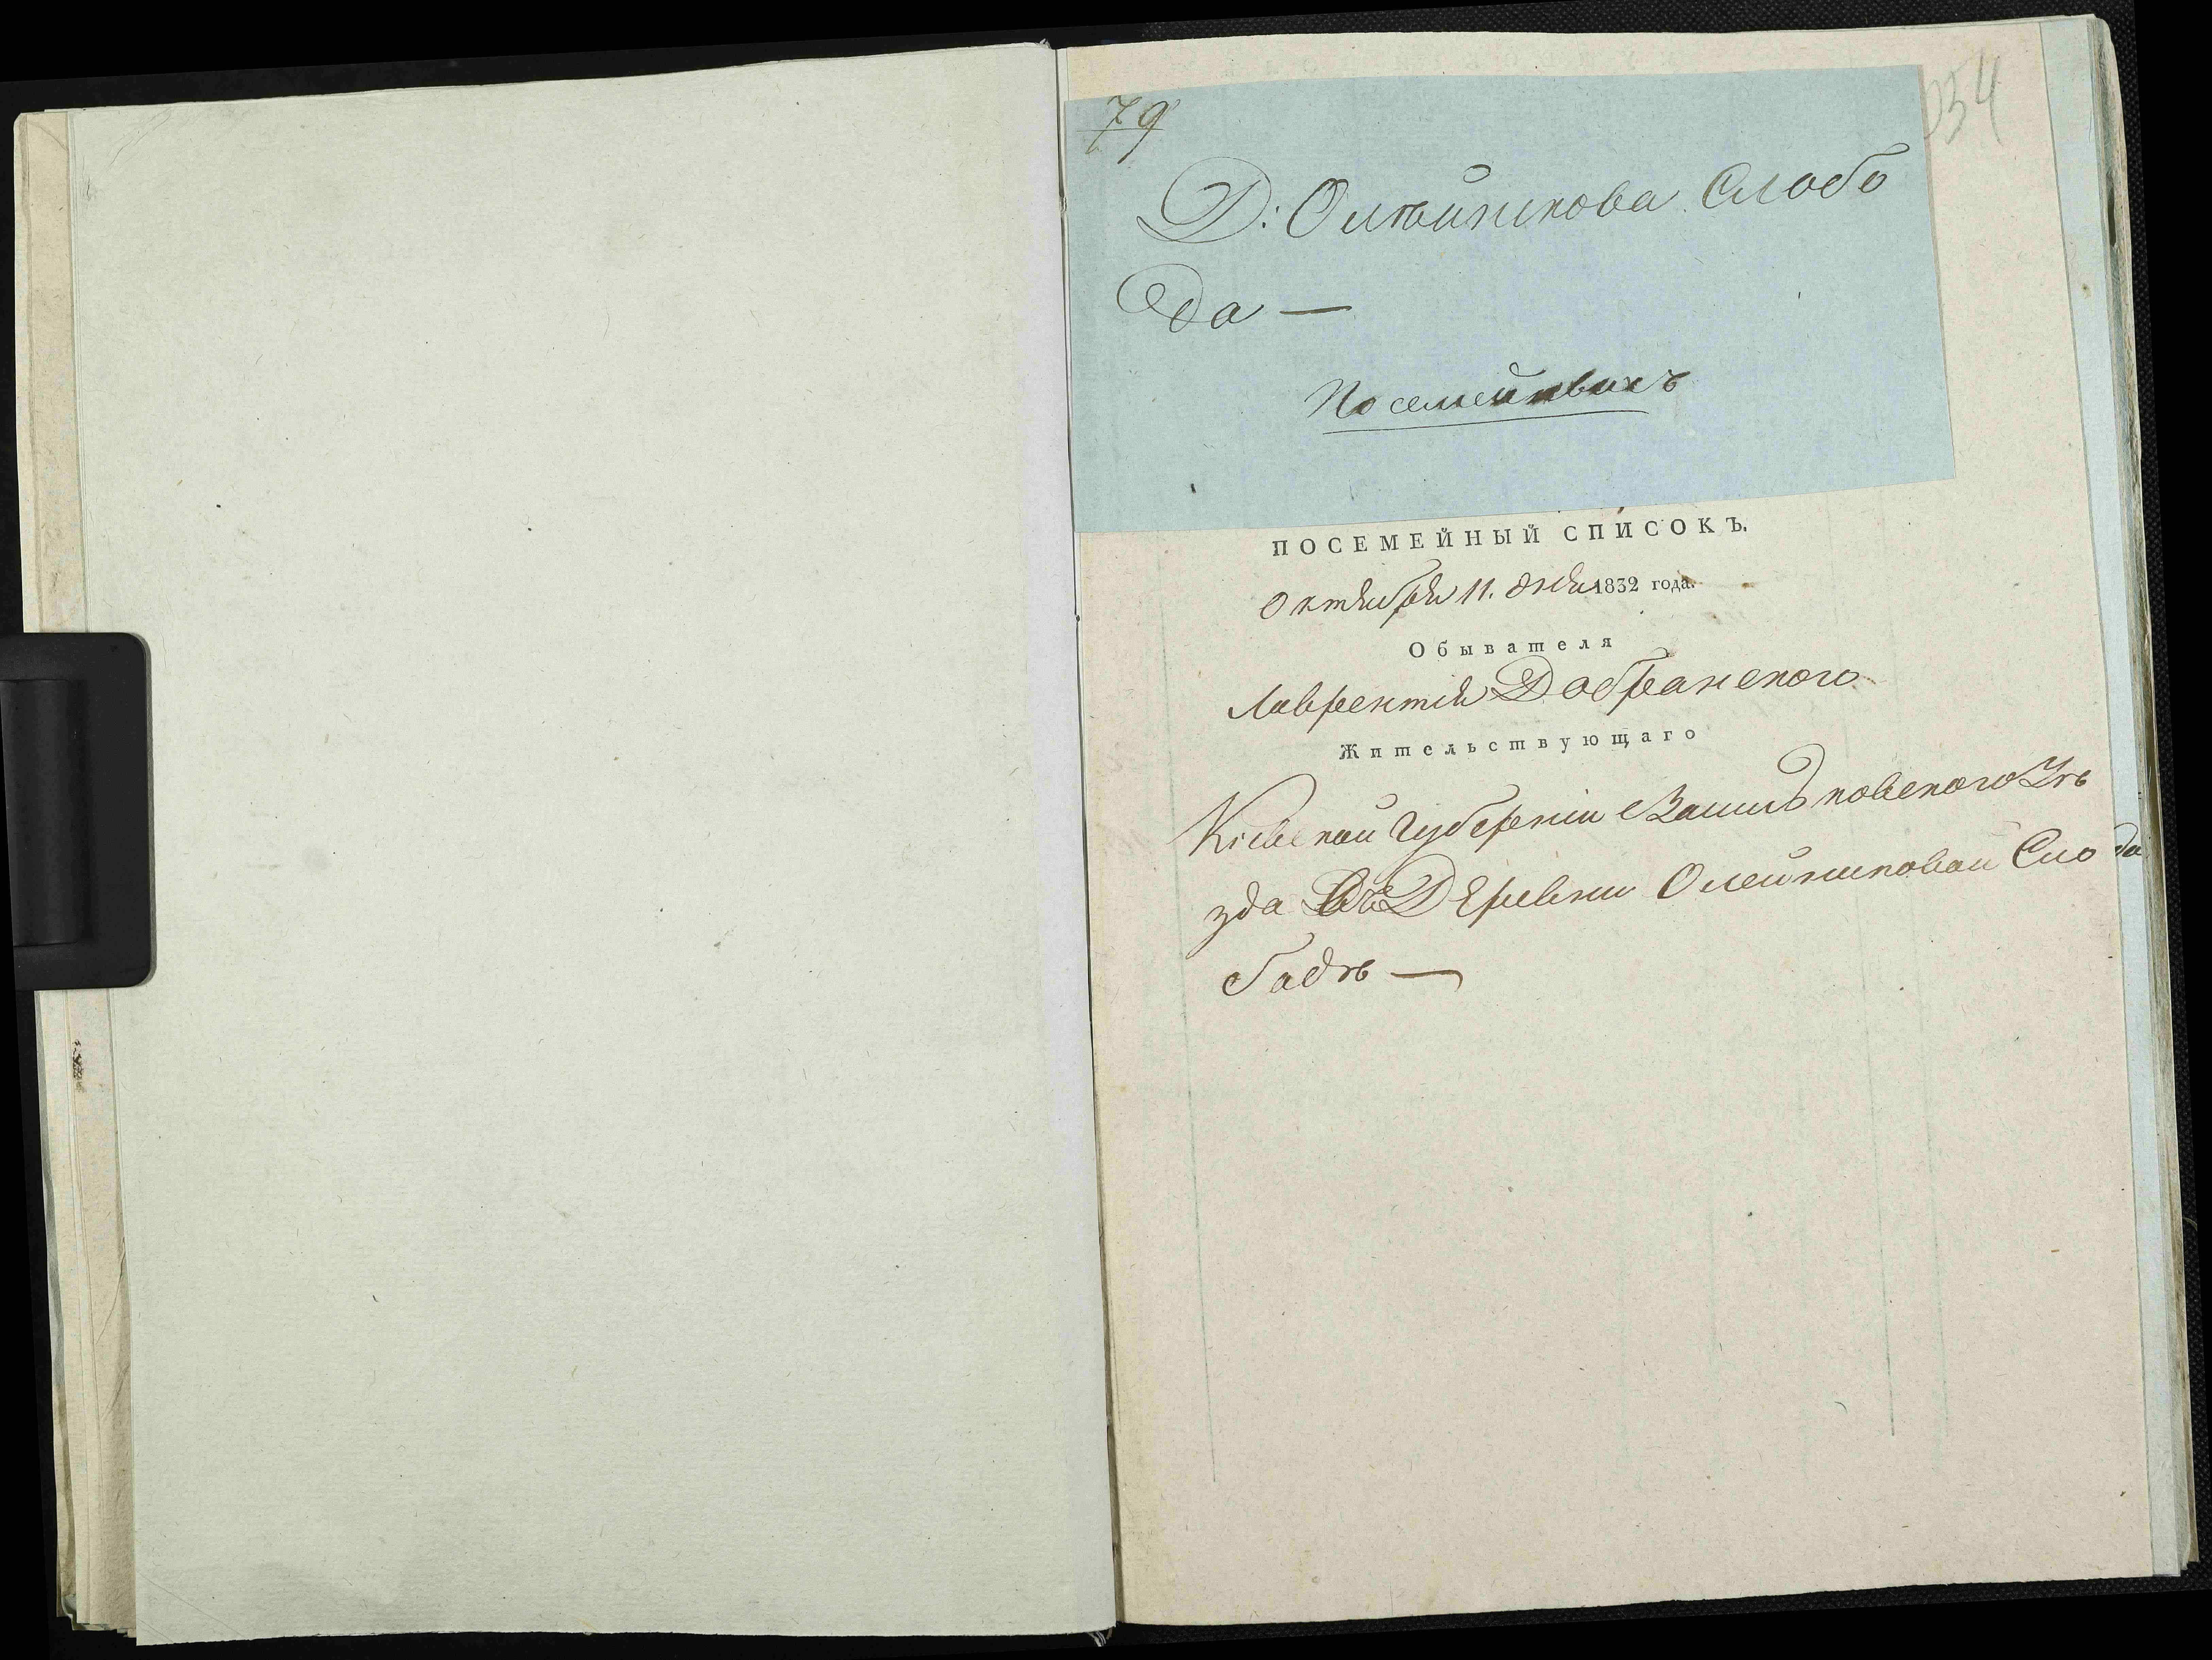 79
Д: Олѣйникова Слобо
да —
Посемейныхъ
ПОСЕМЕЙНЫЙ СПИСОКЪ.
Октября 11. дня 1832 года.
Обывателя
Лаврентія Добранского
Жительствующаго
Кіевской Губерніи Уѣ
зда Въ Деревни Олейниковой Сло
бодѣ —